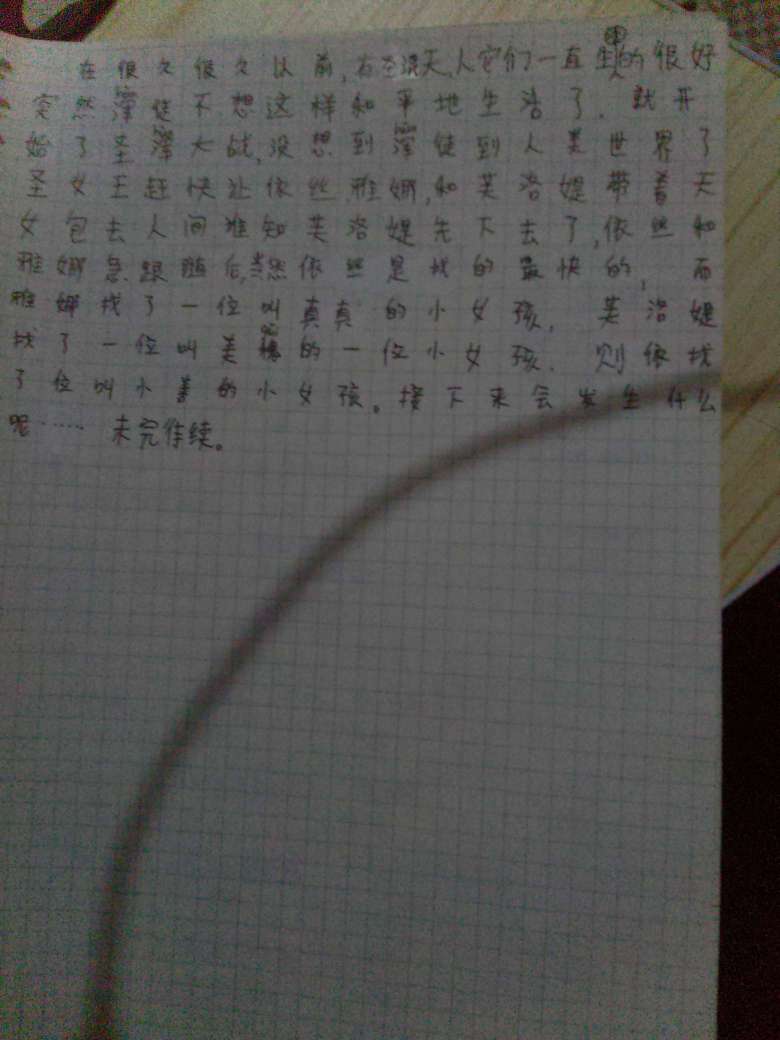 在很久很久以前,有圣洸天人它们一直生的很好
突然滓徒不想这样和平地生活了.就开
始了圣滓大战,没想到滓徒到人类世界了
圣女王赶快让依丝.雅娜,和芙洛媞带着天
女包去人间谁知芙洛媞先下去了,依丝和
雅娜急跟随后,当然依丝是找的最快的,而
雅娜找了一位叫真真的小女孩,芙洛媞
找了一位叫美的一位小女孩.则依找
了位叫小善的小女孩。接下来会发生什么
呢……未完待续。